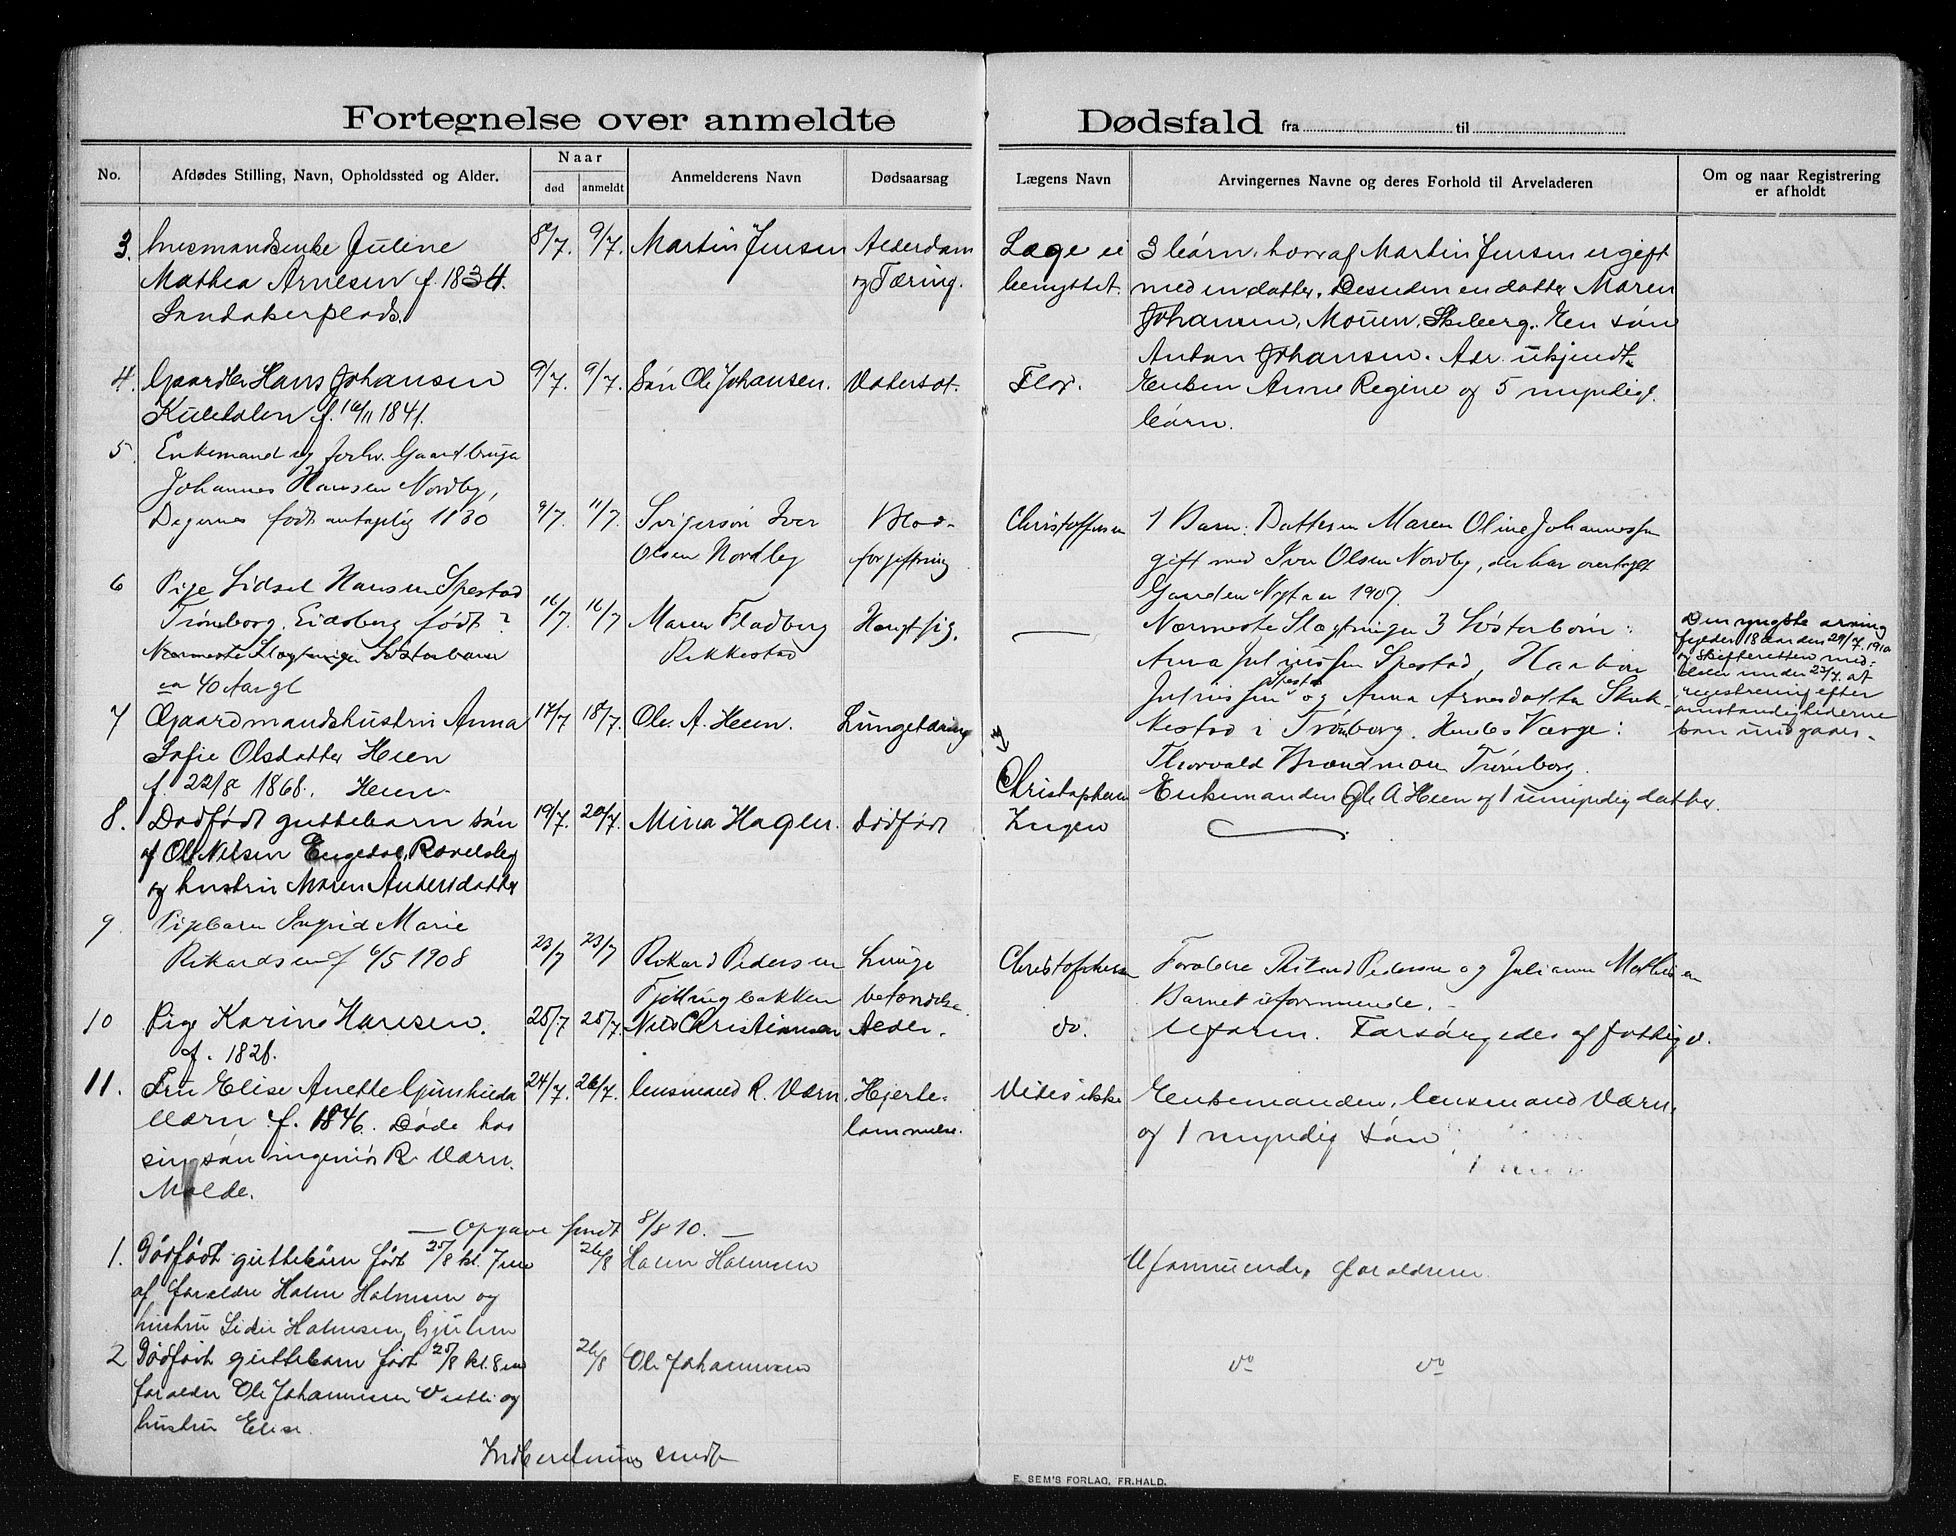 Fortegnelse over anmeldte Dødsfald fra til
No.
Afdødes Stilling, Navn, Opholdssted og Alder.
Naar
død
anmeldt
Anmelderens Navn
Dødsaarsag
Lægens Navn
Arvingernes Navne og deres Forhold til Arveladeren
Om og naar Registrering
er afholdt
3. Juline 8/7. 9/7. Martin Jensen Alderdom Læge ei 3 børn, hvoraf Martin Jensen er gift
Mathea Arnesen f. 1834. og Tæring. benyttet. med en datter. Desuden en datter Maren
Sandakerplads. Johansen, Mouen, Skiberg. En søn
Anton Johansen. Adr. ukjendt.
4. Hans Johansen 9/7. 9/7. Søn Ole Johansen. Vatersot. Flor. Enken Anne Regine og 5 myndige
f. 16/11 1841. børn.
5. Enkemand og forhv. Gaardbruger
Johannes Hansen Nordby,
Degernes født antagelig 1830 9/7. 11/7. Svigersøn Iver Blod- Christophersen 1 Barn. Datteren Maren Oline Johannessen
Olsen Nordby forgiftning gift med Iver Olsen Nordby, der har overtaget
Gaarden 1907.
6 Pige Lidsel Hansen Spestad
Trømborg, Eidsberg født? 16/7. 16/7 Maren Fladberg Nærmeste Slægtninger 3 Søsterbørn: Den yngste arving
Nærmeste Slægtninger Søsterbørn Rakkestad Anna Juliussen Spestad, fylder 18 aar den 29/7 1910
ca 40 Aar gl Juliussen Spestad og Anna Arnesdatter og Skifteretten med-
7 Gaardmandshustru Anna 17/7 18/7. Ole A. Heen. Lungetæring i Trømborg. Hendes Værge: deler under 23/7. at
Sofie Olsdatter Heen Thorvald Brandmoen Trømborg. registrering efter
f. 22/8 1868. Heen. Christophersen Enkemanden Ole A Heen og 1 umyndig datter. omstændighederne
kan undgaaes.
8. Dødfødt guttebarn søn 19/7. 20/7. Mina Hagen. dødfødt Ingen
af Ole Nilsen Engedal,
og hustru Maren Andersdatter
9. Pigebarn Ingrid Marie
Rikardsen f 6/5 1908 23/7 23/7 Rikard Pedersen Lunge Christophersen Forældre Rikard Pedersen og Juliane
Fjellingbakken betændelse. Barnet uformuende.
10 Pige Karine Hansen. 25/7 25/7. Nils Christiansen Alder. do. Uform. Forsørgedes af fattigv.
f. 1828.
11. Fru Elise Anette Gunhilda 24/7. 26/7. lensmand R. Værn Hjerte- Vides ikke Enkemanden, lensmand Værn.
Værn f. 1846. Døde hos lammelse. og 1 myndig søn
sin søn ingeniør R. Værn.
Molde.
— Opgave sendt 8/8 10. —
1. Dødfødt guttebarn født 25/8 kl. 7 26/8 Halm Halmsen Uformuende, forældrene.
af forældre Halm Halmsen og
hustru Halmsen,
2 Dødfødt guttebarn født 25/8 kl. 8 26/8 Ole Johannesen do do
forældre Ole Johannesen og
hustru Elise.
Indberetning sendt
E. SEM'S FORLAG, FR.HALD.